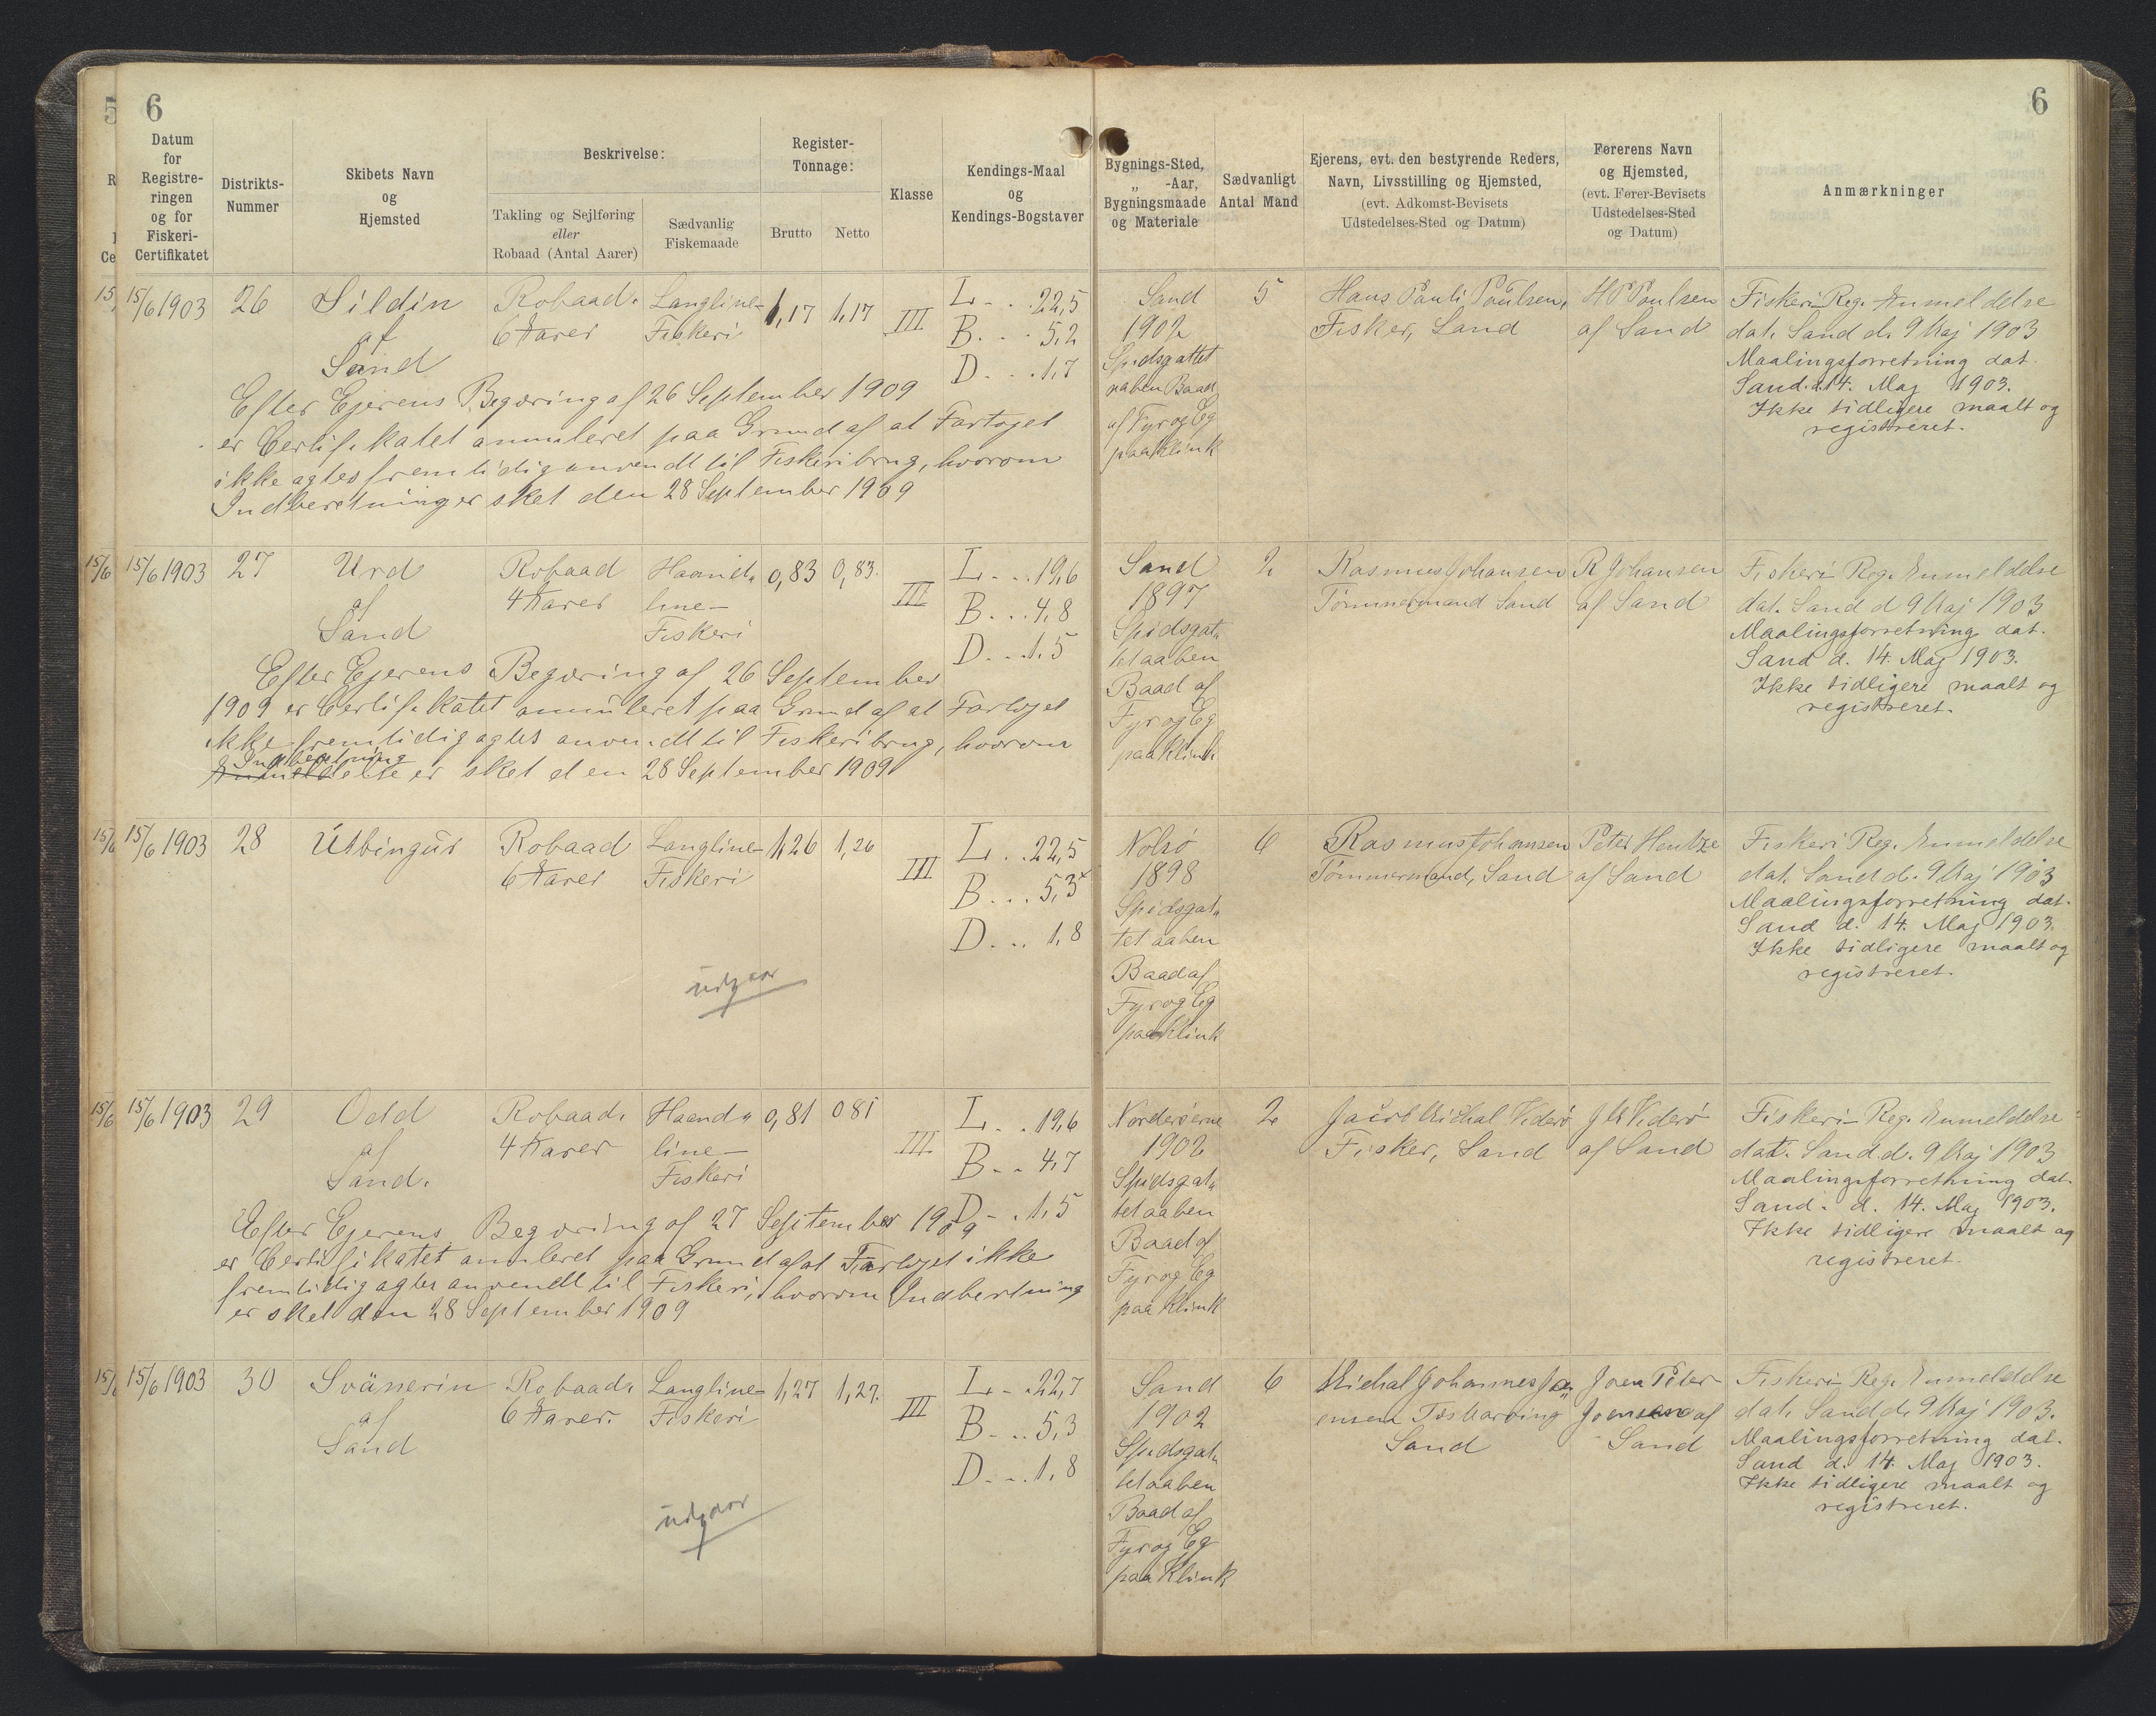 5 6
6
Datum
for
Registre-
ringen
og for
Fiskeri-
Certifikatet
Distrikts-
Nummer
Skibets Navn
og
Hjemsted
Beskrivelse:
Takling og Sejlføring
eller
Robaad (Antal Aarer)
Sædvanlig
Fiskemaade
Register-
Tonnage:
Brutto Netto
Klasse
Kendings-Maal
og
Kendings-Bogstaver
Bygnings-Sted,
„ -Aar,
Bygningsmaade
og Materiale
Sædvanligt
Antal Mand
Ejerens, evt. den bestyrende Reders,
Navn, Livsstilling og Hjemsted,
(evt. Adkomst-Bevisets
Udstedelses-Sted og Datum)
Førerens Navn
og Hjemsted,
(evt. Fører-Bevisets
Udstedelses-Sted
og Datum)
Anmærkninger
15/6 1903 26
Sildin
af
Sand
Robaad.
6 Aarer
Langline-
Fiskeri
1,17 1,17 III
L - . . 22,5
B. . . 5,2
D . . . 1,7
Sand
1902
Spidsgattet
aaben Baad
af Fyr og Eg
paa Klink
5
Hans Pauli Poulsen,
Fisker, Sand
H P Poulsen
af Sand
Fiskeri-Reg. Anmeldelse
dat. Sand d. 9 Maj 1903
Maalingsforretning dat.
Sand. d. 14. Maj 1903.
Ikke tidligere maalt og
registreret.
Efter Ejerens Begæring af 26 September 1909
er Certifikatet annuleret paa Grund af at Fartøjet
ikke agtes fremtidig anvendt til Fiskeribrug, hvorom
Indberetning er sket den 28 September 1909
15/6 15/6 1903 27
Urd
af
Sand
Robaad
4 Aarer
Haand-
line-
Fiskeri
0,83 0,83. III
L . . . 19,6
B . . . 4,8
D . . . 1.5
Sand
1897
Spidsgat-
tet aaben
Baad af
Fyr og Eg
paa Klink
2
Rasmus Johansen
Tømmermand Sand
R Johansen
af Sand
Fiskeri-Reg. Anmeldelse
dat. Sand d 9 Maj 1903
Maalingsforretning dat.
Sand d. 14. Maj 1903.
Ikke tidligere maalt og
registreret.
Efter Ejerens Begæring af 26 September
1909 er Certifikatet annuleret paa Grund af at Fartøjet
ikke fremtidig agtes anvendt til Fiskeribrug, hvorom
Indberetning
Anmeldelse er sket den 28 September 1909
15/6 15/6 1903 28
Útbingur
Robaad
6 Aarer
Langline-
Fiskeri
1,26 1,26 III
L . . 22,5
B . . . 5,3
D . . . 1,8
Nolsø
1898
Spidsgat-
tet aaben
Baad af
Fyr og Eg
paa Klink
6
Rasmus Johansen
Tømmermand, Sand
Peter Hentze
af Sand
Fiskeri Reg. Anmeldelse
dat. Sand d. 9 Maj 1903
Maalingsforretning dat.
Sand d. 14. Maj 1903.
Ikke tidligere maalt og
registreret.
udgaar
15/6 15/6 1903 29
Odd
af
Sand.
Robaad.
4 Aarer
Haand-
line-
Fiskeri
0,81 0 81 III.
L . . 19,6
B . . 4,7
D - . 1,5
Norderøerne
1902
Spidsgat-
tet aaben
Baad af
Fyr og Eg
paa Klink
2
Jacob Michal Viderø
Fisker, Sand
J M Viderø
af Sand
Fiskeri-Reg. Anmeldelse
dat. Sand d. 9 Maj 1903
Maalingsforretning dat.
Sand. d. 14. Maj 1903.
Ikke tidligere maalt og
registreret.
Efter Ejerens Begæring af 27 September 1909
er Certifikatet annuleret paa Grund af at Fartøjet ikke
fremtidig agtes anvendt til Fiskeri, hvorom Indberetning
er sket den 28 September 1909
15/6 15/6 1903 30
Svänerin
af
Sand
Robaad.
6 Aarer.
Langline-
Fiskeri
1,27 1,27. III
L - . 22,7
B - . . 5,3
D . . . 1,8
Sand
1902
Spidsgat-
tet aaben
Baad af
Fyr og Eg
paa Klink
6
Michal Johannes Jo-
ensen Trøstharving
Sand
Joen Peter
Joensen af
Sand
Fiskeri-Reg. Anmeldelse
dat. Sand d. 9 Maj 1903.
Maalingsforretning dat.
Sand d. 14. Maj 1903.
Ikke tidligere maalt og
registreret.
udgaar